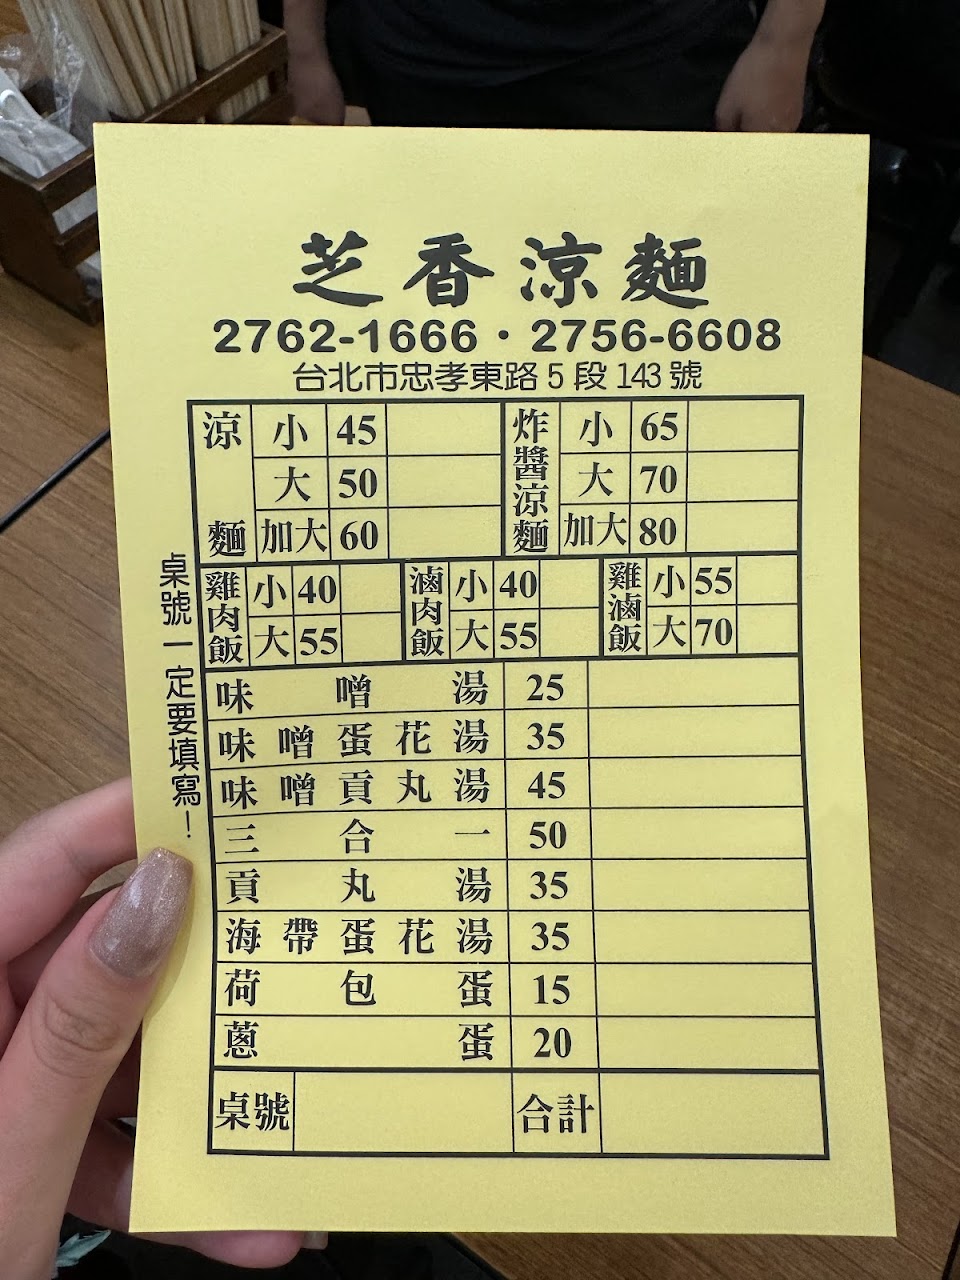 芝香涼麵
2762-1666・2756-6608
台北市忠孝東路5段143號
涼麵 小 45
大 50
加大 60
炸醬涼麵 小 65
大 70
加大 80
雞肉飯 小 40
大 55
滷肉飯 小 40
大 55
雞滷飯 小 55
大 70
味噌湯 25
味噌蛋花湯 35
味噌貢丸湯 45
三合一 50
貢丸湯 35
海帶蛋花湯 35
荷包蛋 15
蔥蛋 20
桌號 合計
桌號一定要填寫！